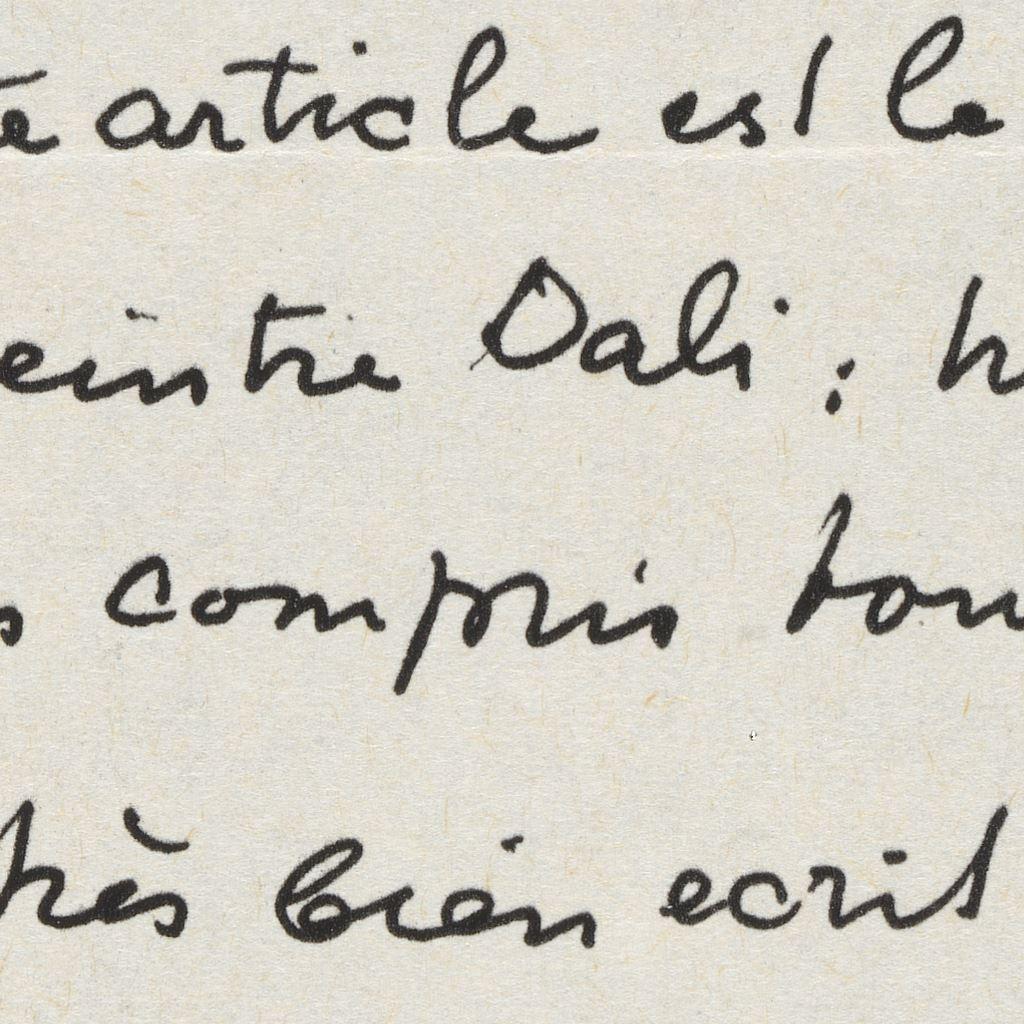 te article est le
eintre Dali : h
s compris tou
très bien ecrit